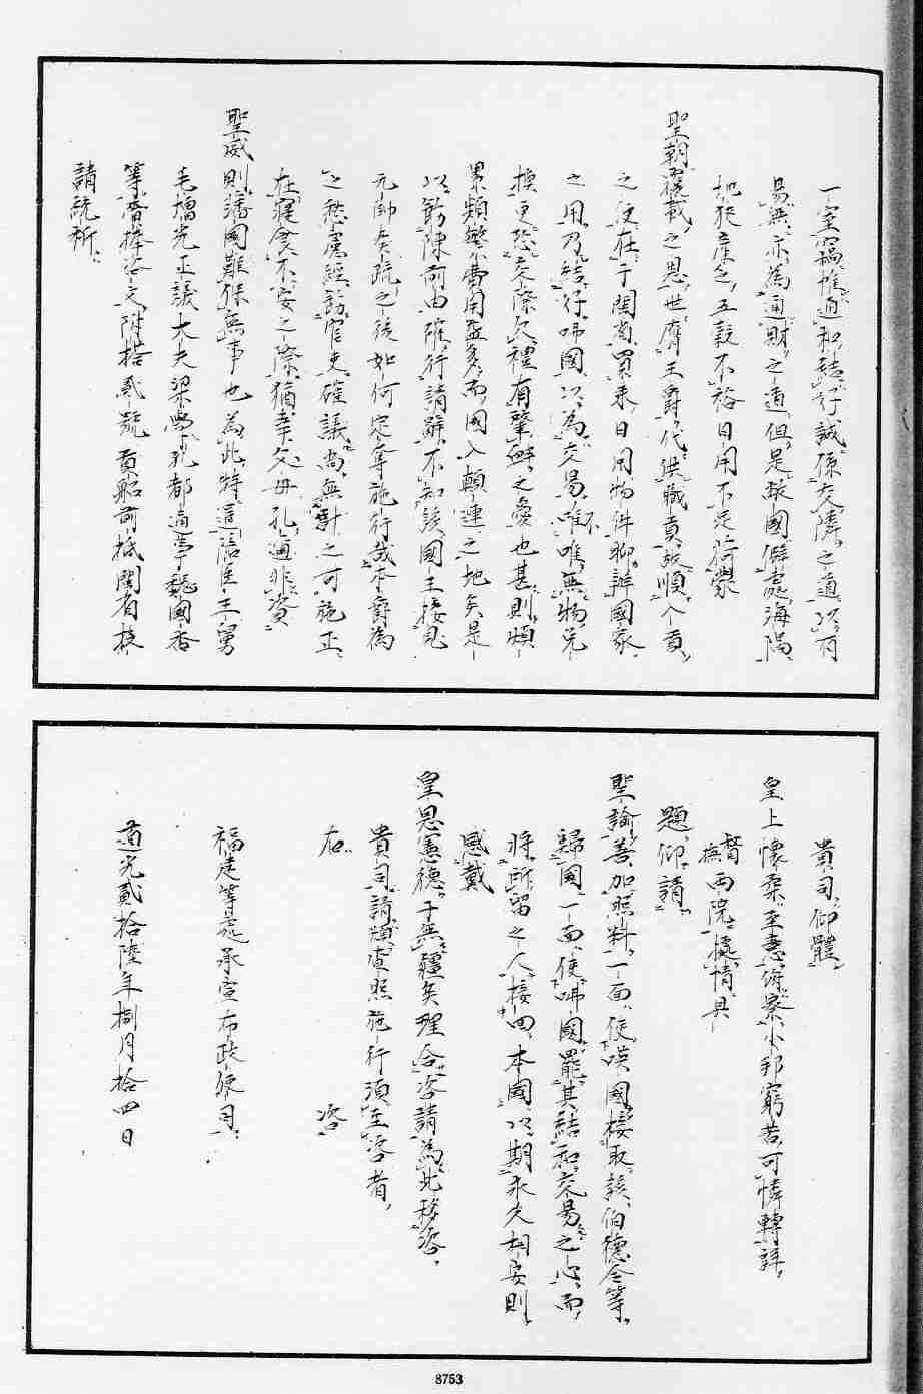 一室竊惟通和結行誠係交隣之道以有
易無亦為通財之道但是球國僻處海隅
地狹產乏五穀不裕日用不足荷蒙
聖朝覆載之恩世膺王爵代供職貢敬順入貢
之便在于閩省買來日用物件聊辦國家
之用乃結行咈國以為交易不唯無物兌
換更恐交際欠禮有肇衅之憂也甚則煩
累類繁費用益多而國入顛連之地矣是
以飭陳前由確行請辭不知該國王接見
元帥奏疏之後如何定奪施行哉本爵為
之愁慮經飭官吏確議尚無計之可施正
在寢食不安之際猶幸父母孔通非資
聖威則藩國難保無事也為此特遣陪臣王舅
毛增光正議大夫梁學孔都通事魏國香
等齎捧咨文附拾貳號貢船前抵閩省投
請統祈
貴司仰體
皇上懷柔至意俯察小邦窮苦可憐轉詳
督撫兩院據情具
題仰請
聖諭善加照料一面使𠸄國接取該伯德令等
歸國一面使咈國罷其結和交易之心而
將所留之人接回本國以期永久相安則
感戴
皇恩憲德于無疆矣理合咨請為此移咨
貴司請煩查照施行須至咨者
右 咨
福建等處承宣布政使司
道光貳拾陸年捌月拾四日
8753